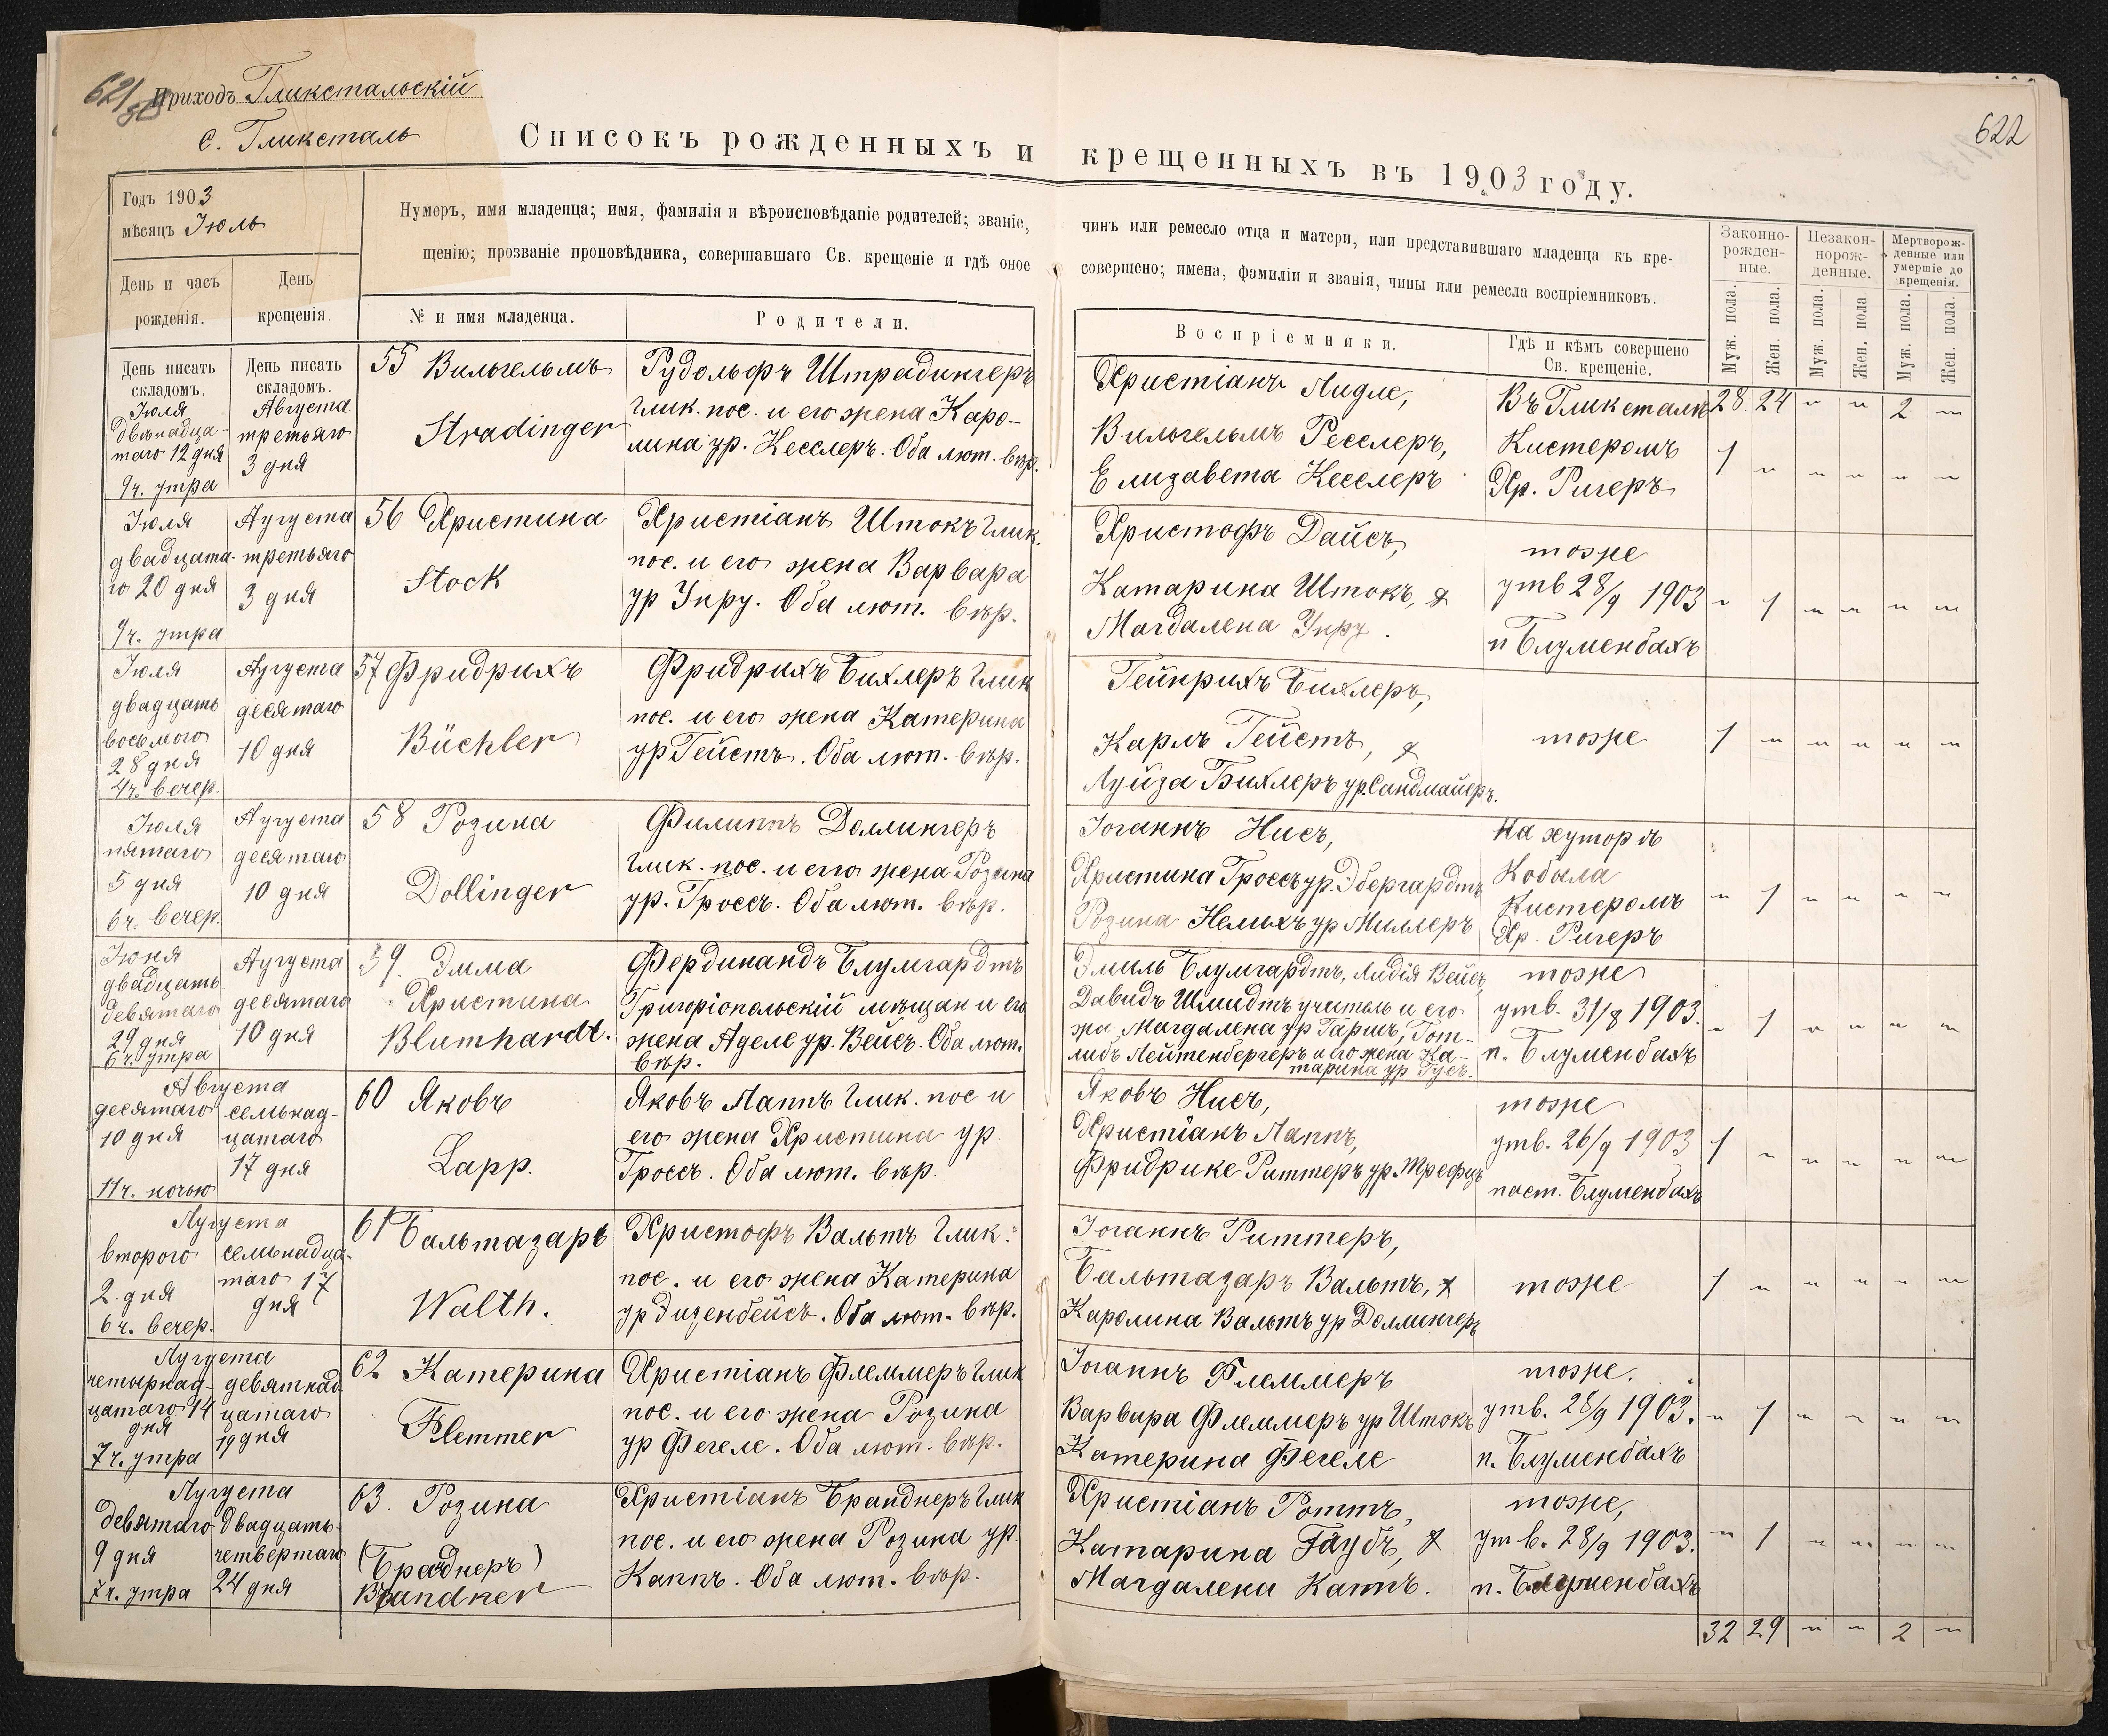 621
Приходъ Гликстальскій
622
с. Гликсталь
Списокъ рожденныхъ и крещенныхъ въ 1903 году.
Годъ 1903
мѣсяцъ Іюль
Нумеръ, имя младенца; имя, фамилія и вѣроисповѣданіе родителей; званіе, чинъ или ремесло отца и матери, или представившаго младенца къ кре-
щенію; прозваніе проповѣдника, совершавшаго Св. крещеніе и гдѣ оное совершено; имена, фамиліи и званія, чины или ремесла воспріемниковъ.
Законно-
рожден-
ные.
Незакон-
норож-
денные.
Мертворож-
денные или
умершіе до
крещенія.
День и часъ
рожденія.
День
крещенія.
№ и имя младенца.
Родители.
Воспріемники.
Гдѣ и кѣмъ совершено
Св. крещеніе.
Муж. пола.
Жен. пола.
Муж. пола.
Жен. пола
Муж. пола.
Жен. пола.
День писать
складомъ.
День писать
складомъ.
Іюля
двѣнадца-
таго 12 дня
9ч. утра
Августа
третьяго
3 дня
55 Вильгельмъ
Stradinger
Рудольфъ Штрадингеръ
глик. пос. и его жена Каро-
лина ур. Кесслеръ. Оба лют. вѣр.
Христіанъ Аидле,
Вильгельмъ Ресслеръ,
Елизавета Кесслеръ
Въ Гликсталѣ
Кистеромъ
Хр. Ригеръ
28 24 " " 2 "
1 " " " " "
Іюля
двадцата-
го 20 дня
9ч. утра
Аугуста
третьяго
3 дня
56 Христина
Stock
Христіанъ Штокъ глик.
пос. и его жена Варвара
ур Унру. Оба лют. вѣр.
Христофъ Дайсъ,
Катарина Штокъ, &
Магдалена Унру.
тоже
утв 28/9 1903
п Блуменбахъ
" 1 " " " "
Іюля
двадцать
восьмого
28 дня
4ч. вечер.
Аугуста
десятаго
10 дня
57 Фридрихъ
Büchler
Фридрихъ Бихлеръ глик
пос. и его жена Катерина
ур Гейстъ. Оба лют. вѣр.
Гейнрихъ Бихлеръ,
Карлъ Гейстъ, &
Луйза Бихлеръ ур. Сандмайеръ.
тоже
1 " " " " "
Іюля
пятаго
5 дня
6ч. вечер.
Аугуста
десятаго
10 дня
58 Розина
Dollinger
Филиппъ Доллингеръ
глик. пос. и его жена Розина
ур. Гроссъ. Оба лют. вѣр.
Іоганнъ Нисъ,
Христина Гроссъ ур. Эбергардтъ
Розина Немихъ ур Миллеръ
На хуторѣ
Кобыла
Кистеромъ
Хр. Ригеръ
" 1 " " " "
Іюня
двадцать
девятаго
29 дня
6ч. утра
Аугуста
десятаго
10 дня
59. Эмма
Христина
Blumhardt.
Фердинандъ Блумгардтъ
Григоріопольскій мѣщан и его
жена Аделе ур. Вейсъ. Оба лют.
вѣр.
Эмиль Блумгардтъ, Лидія Вейсъ,
Давидъ Шмидтъ учитель и его
жен. Магдалена ур Гаришъ, Гот-
либъ Лейтенбергеръ и его жена Ка-
тарина ур Гусъ.
тоже
утв. 31/8 1903.
п. Блуменбахъ
" 1 " " " "
Августа
десятаго
10 дня
11ч. ночью
семьнад-
цатаго
17 дня
60 Яковъ
Lapp.
Яковъ Лаппъ глик. пос и
его жена Христина ур.
Гроссъ. Оба лют. вѣр.
Яковъ Нисъ,
Христіанъ Лаппъ,
Фридрике Риттеръ ур. Трефцъ
тоже
утв. 26/9 1903
паст. Блуменбахъ
1 " " " " "
Аугуста
второго
2. дня
6ч. вечер.
семьнадца-
таго 17
дня
61 Бальтазаръ
Walth.
Христофъ Вальтъ глик.
пос. и его жена Катерина
ур Эизенбейсъ. Оба лют. вѣр.
Іоганнъ Риттеръ,
Бальтазаръ Вальтъ, &
Каролина Вальтъ ур Доллингеръ
тоже
1 " " " " "
Аугуста
четырнад-
цатаго 14
дня
7ч. утра
девятнад
цатаго
19 дня
62 Катерина
Flemmer
Христіанъ Флеммеръ глик
пос. и его жена Розина
ур Фегеле. Оба лют. вѣр.
Іоганнъ Флеммеръ
Варвара Флеммеръ ур Штокъ
Катерина Фегеле
тоже.
утв. 28/9 1903.
п. Блуменбахъ
" 1 " " " "
Аугуста
девятаго
9 дня
7ч. утра
двадцать-
четвертаго
24 дня
63. Розина
(Браднеръ)
Brandner
Христіанъ Бранднеръ глик
пос. и его жена Розина ур.
Каппъ. Оба лют. вѣр.
Христіанъ Роттъ,
Катарина Гаубъ, &
Магдалена Каппъ.
тоже,
утв. 28/9 1903.
п. Блуменбахъ
" 1 " " " "
32 29 " " 2 "